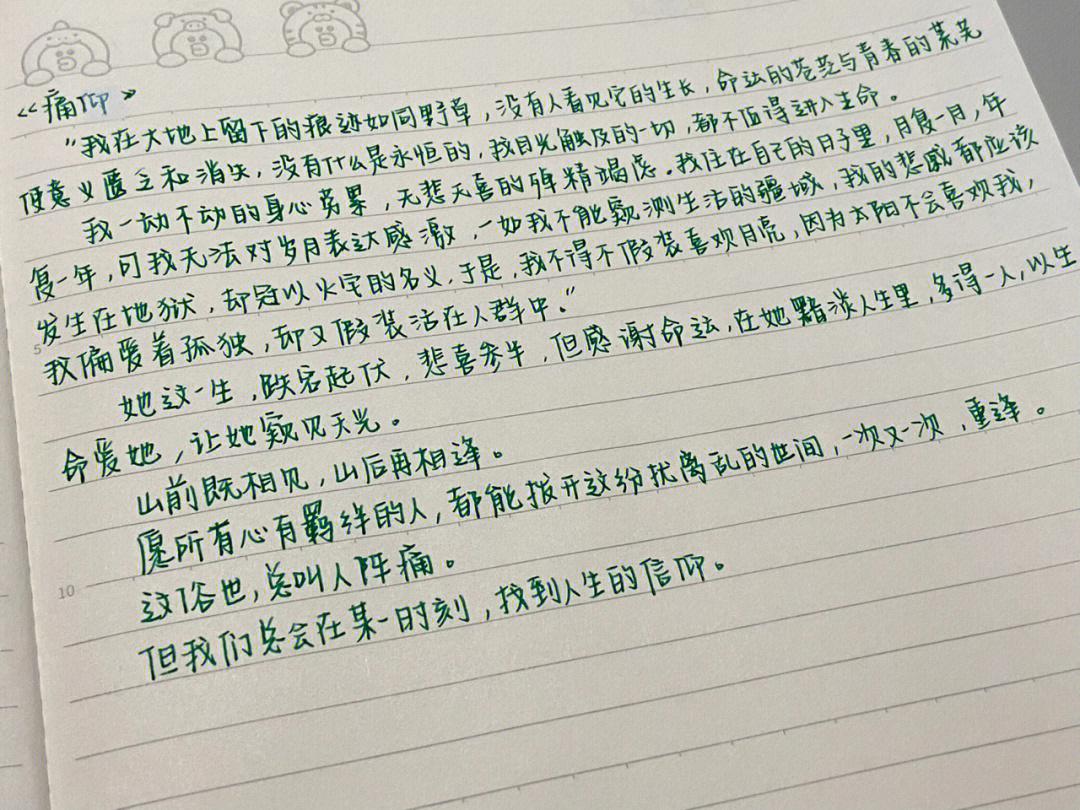 《痛仰》
"我在大地上留下的痕迹如同野草，没有人看见它的生长，命运的苍茫与青春的荒芜
使意义匮乏和消失，没有什么是永恒的，我目光触及的一切，都不值得进入生命。
我一动不动的身心劳累，无悲无喜的殚精竭虑。我住在自己的日子里，月复一月，年
复一年，可我无法对岁月表达感激，一如我不能窥测生活的疆域，我的悲戚都应该
发生在地狱，却冠以火宅的名义，于是，我不得不假装喜欢月亮，因为太阳不会喜欢我，
我偏爱着孤独，却又假装活在人群中。"
她这一生，跌宕起伏，悲喜参半，但感谢命运，在她黯淡人生里，多得一人，以生
命爱她，让她窥见天光。
山前既相见，山后再相逢。
愿所有心有羁绊的人，都能拨开这纷扰离乱的世间，一次又一次，重逢。
这俗世，总叫人阵痛。
但我们总会在某一时刻，找到人生的信仰。
5
10